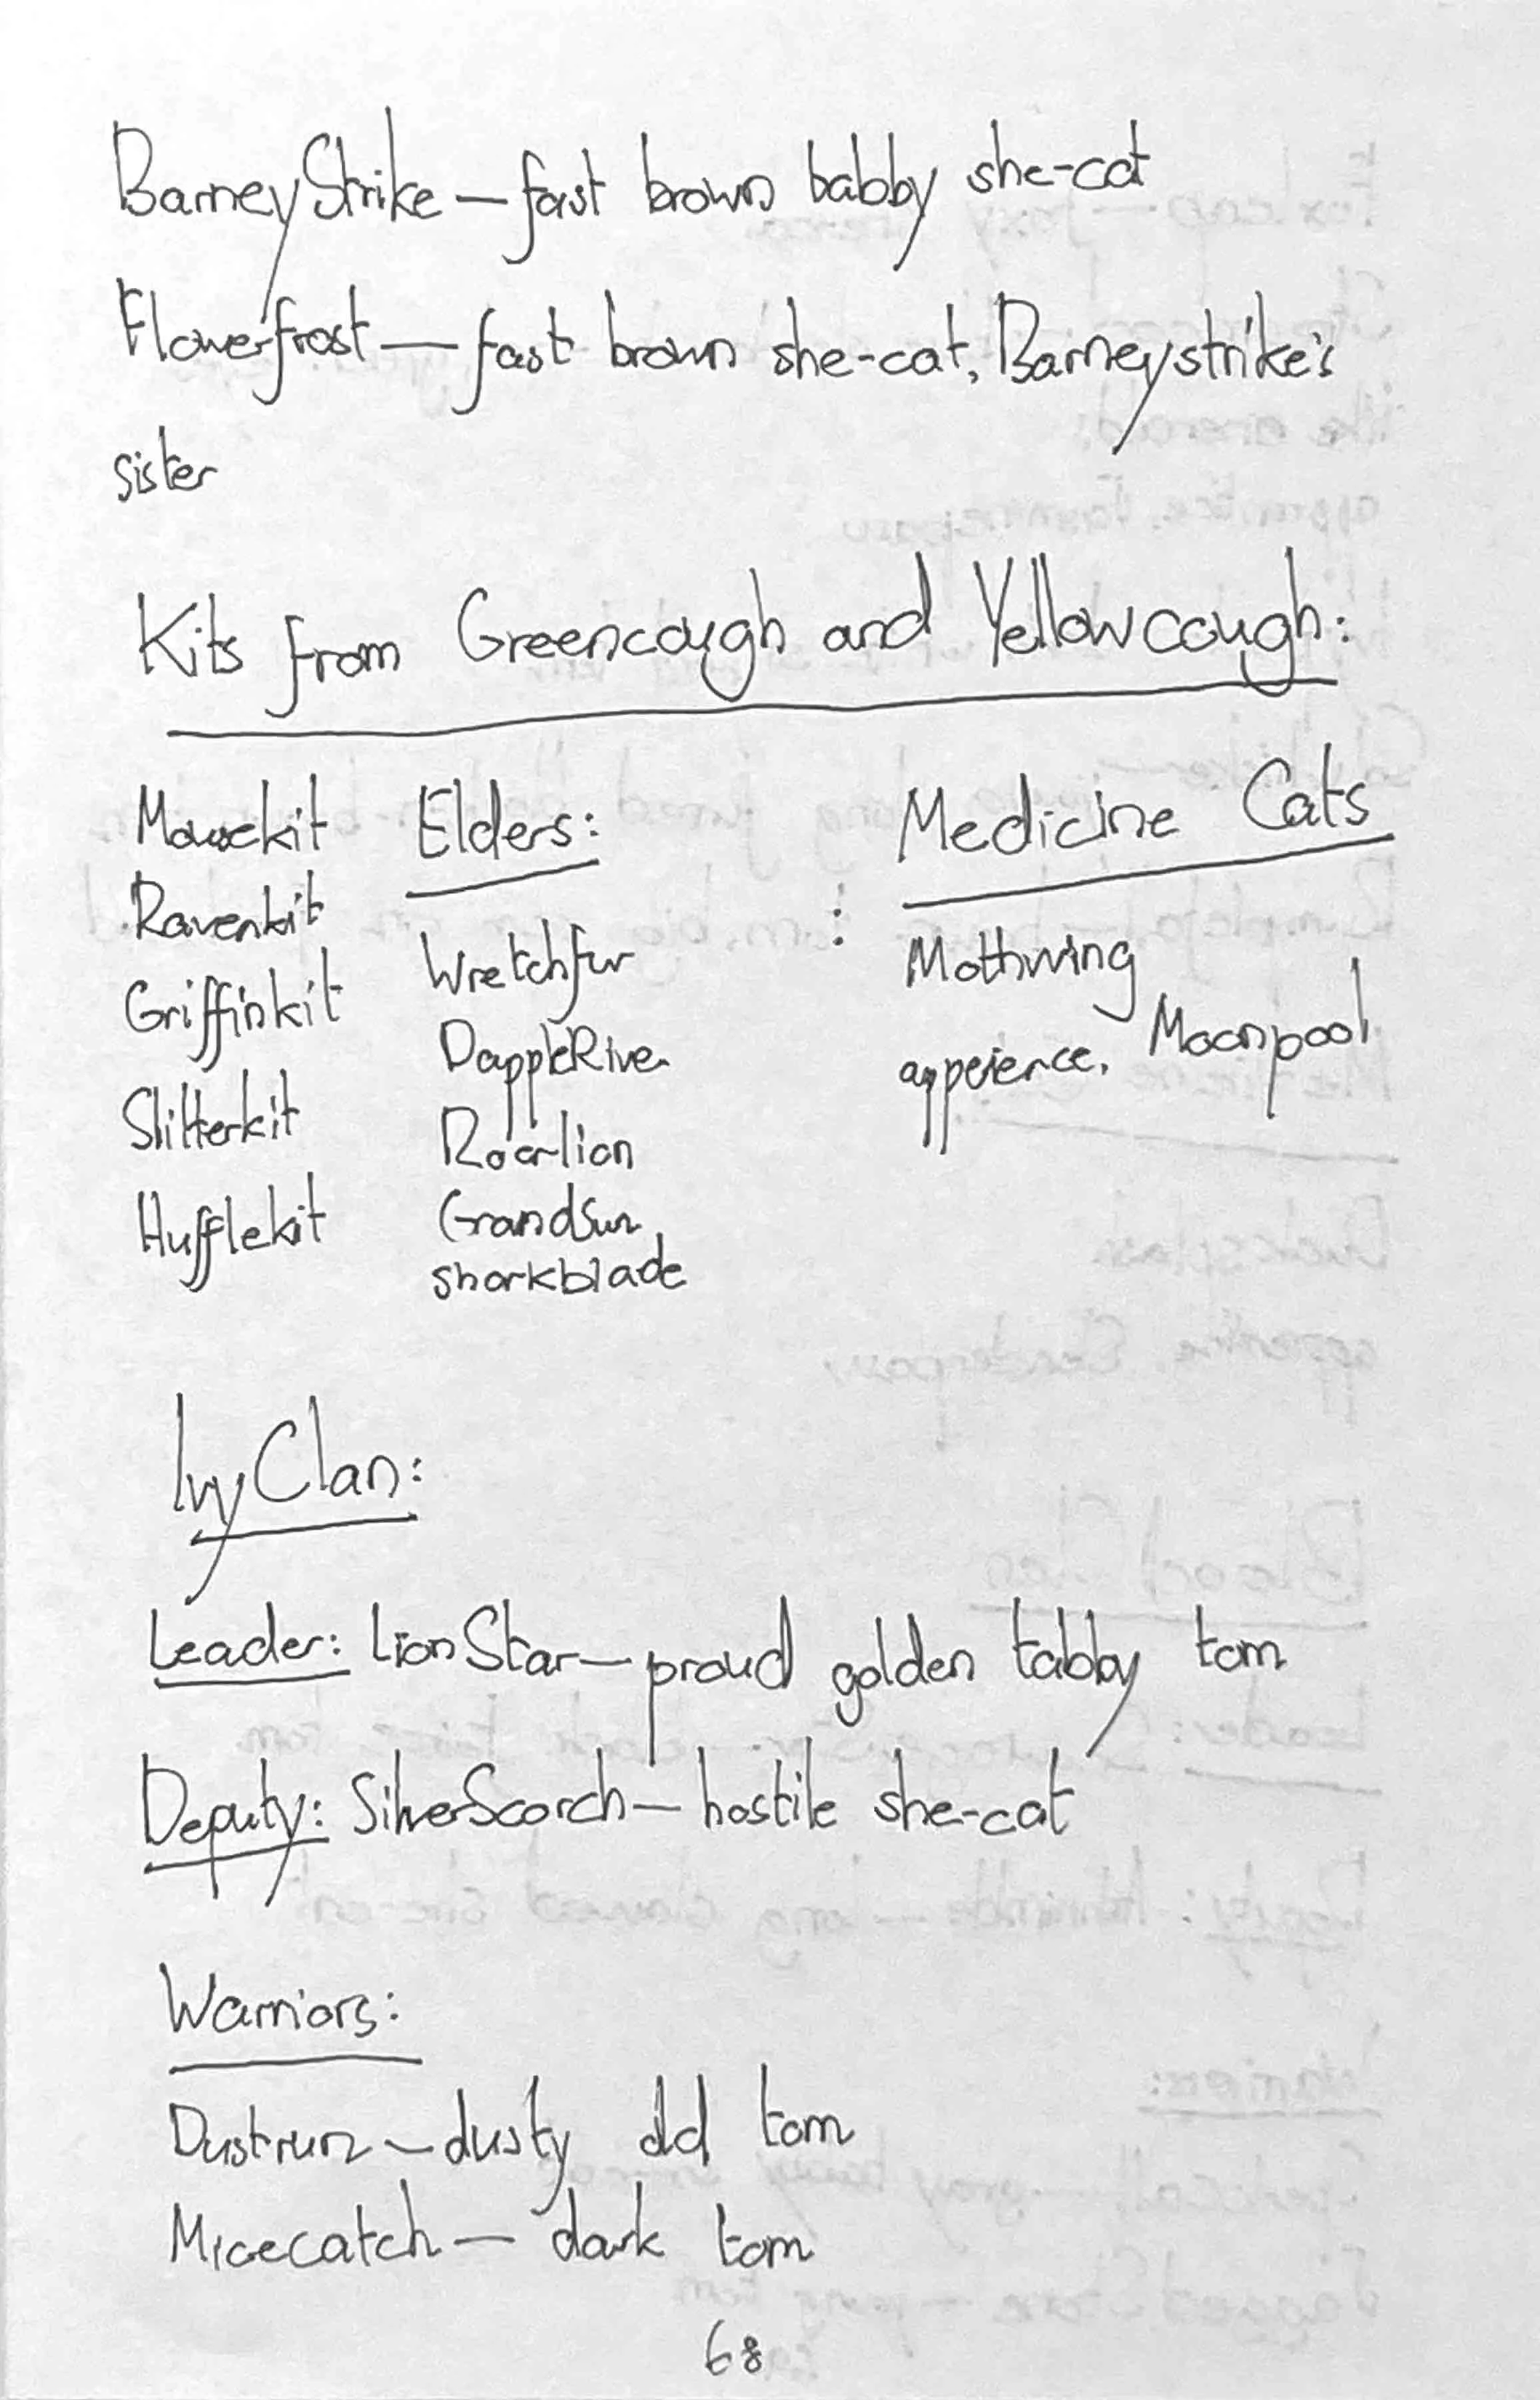 BarneyStrike — fast brown babby she-cat
Flowerfrost — fast brown she-cat, Barneystrike's
sister
Kits from Greencough and Yellowcough:
Mousekit
Ravenkit
Griffinkit
Slitterkit
Hufflekit
Elders:
Wretchfur
DappleRiver
Roarlion
GrandSun
sharkblade
Medicine Cats
:
Mothwing
appeience, Moonpool
IvyClan:
Leader: LionStar — proud golden tabby tom
Deputy: SilverScorch — hostile she-cat
Warriors:
Dustrun — dusty old tom
Micecatch — dark tom
68